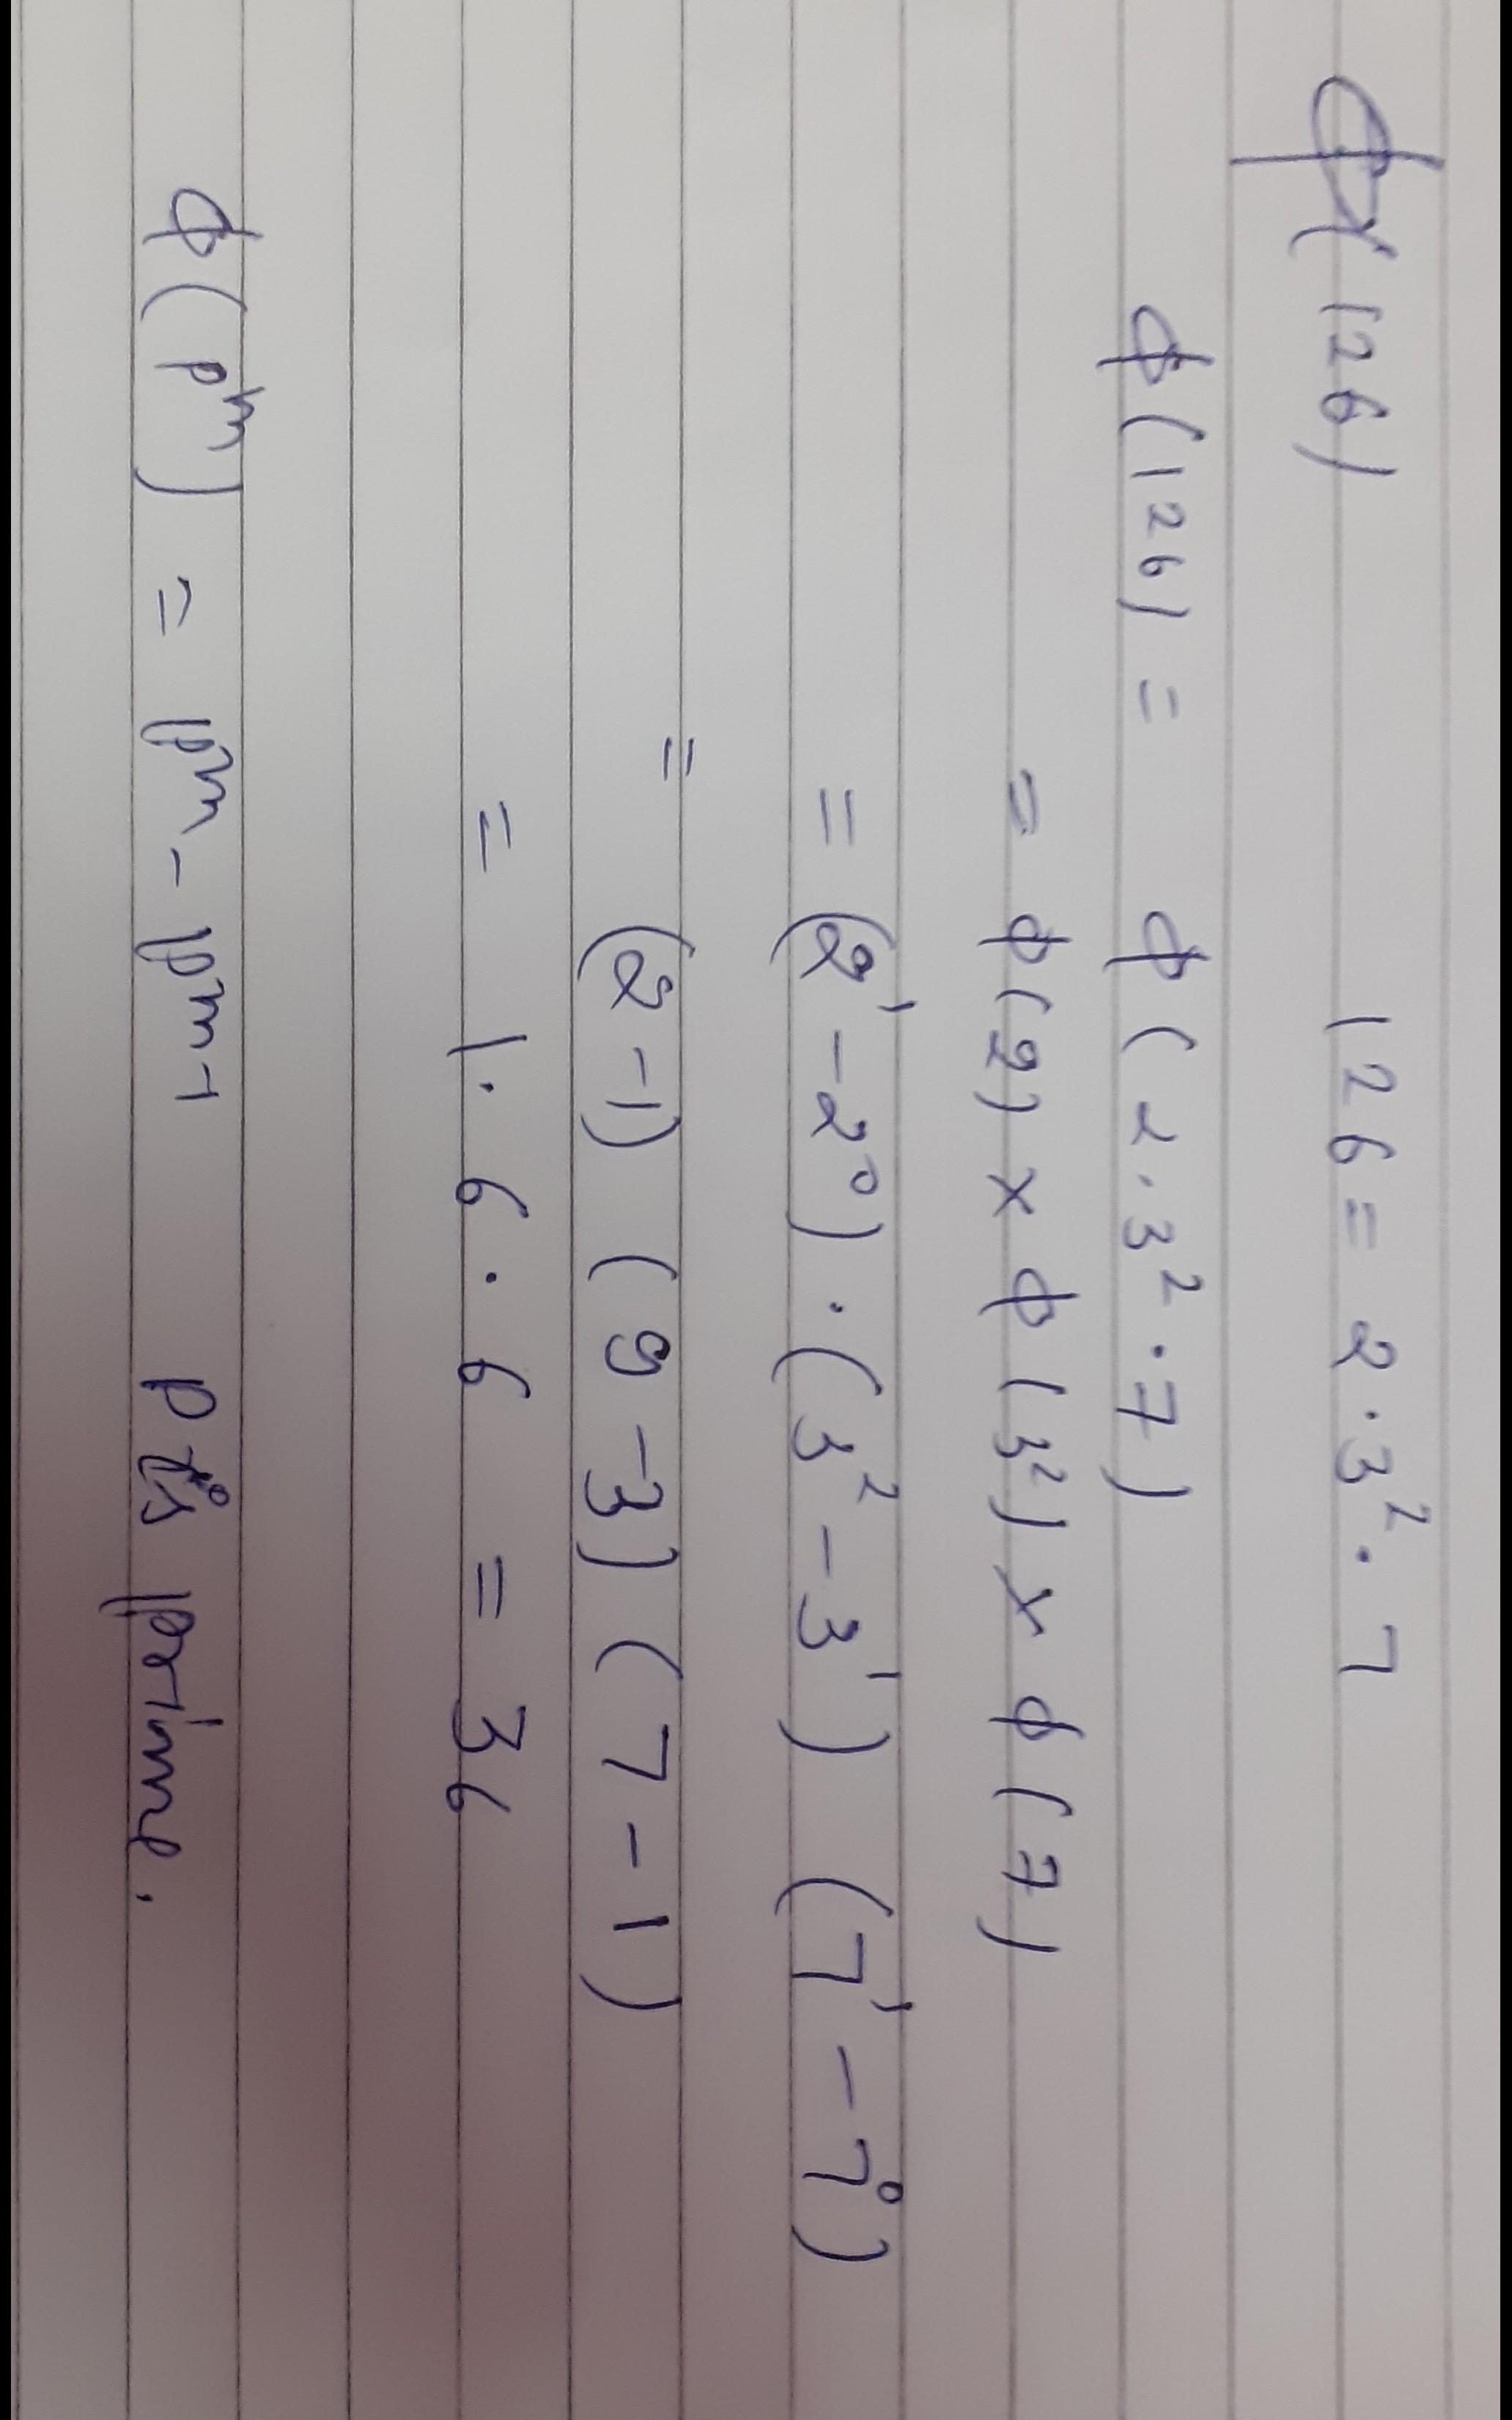 ϕ(126) 126 = 2·3²·7
ϕ(126) = ϕ(2·3²·7)
= ϕ(2) × ϕ(3²) × ϕ(7)
= (2¹-2⁰)·(3²-3¹) (7¹-7⁰)
= (2-1) (9-3) (7-1)
= 1·6·6 = 36
ϕ(pᵐ) = pᵐ - pᵐ⁻¹ p is prime.